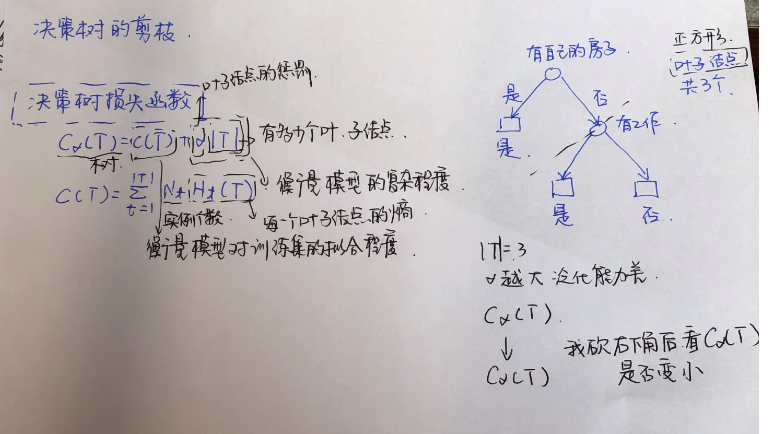 决策树的剪枝.
叶子结点的结果
决策树损失函数
Cα(T)=C(T)+α|T| → 有多少个叶子结点.
树
衡量模型的复杂程度
C(T)=∑ Nt Ht(T)
|T|
t=1
实例个数. 每一个叶子结点的熵
衡量模型对训练集的拟合程度
有自己的房子.
正方形
叶子结点
共3个.
是 否
是. 有工作.
是 否.
|T|=3
α越大 泛化能力差.
Cα(T).
↓
Cα(T)
我砍右下角后看Cα(T)
是否变小